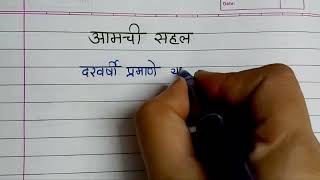 Date:
आमची सहल
दरवर्षी प्रमाणे